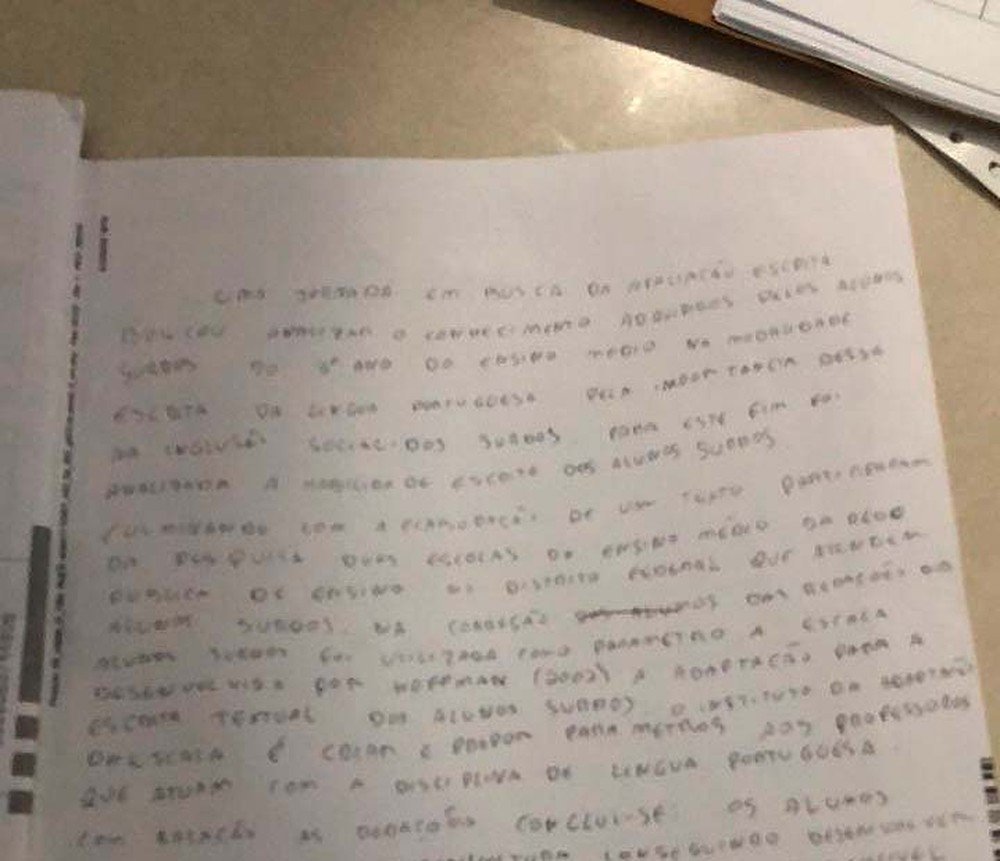 UMA JORNADA EM BUSCA DA AVALIAÇÃO ESCRITA
BUSCOU ANALIZAR O CONHECIMENTO ADQUIRIDOS PELOS ALUNOS
SURDOS DO 3º ANO DO ENSINO MEDIO NA MODALIDADE
ESCRITA DA LINGUA PORTUGUESA PELA IMPORTANCIA DESSA
NA INCLUSÃO SOCIAL DOS SURDOS. PARA ESTE FIM FOI
ANALIZADA A HABILIDADE ESCRITA DOS ALUNOS SURDOS
CULMINANDO COM A ELABORAÇÃO DE UM TEXTO PARTICIPARAM
DA PESQUISA DUAS ESCOLAS DO ENSINO MÉDIO DA REDE
PUBLICA DE ENSINO DO DISTRITO FEDERAL QUE ATENDEM
ALUNOS SURDOS. NA CORREÇÃO DAS REDAÇÕES DOS
ALUNOS SURDOS FOI UTILIZADA COMO PARAMETRO A ESCALA
DESENVOLVIDA POR HOFFMAN (2002) A ADAPTAÇÃO PARA A
ESCRITA TEXTUAL DOS ALUNOS SURDOS. O DA ADAPTAÇÃO
DA ESCALA É CRIAR E PROPOR PARAMETROS AOS PROFESSORES
QUE ATUAM COM A DISCIPLINA DE LINGUA PORTUGUESA.
COM RELAÇÃO AS REDAÇÕES CONCLUI-SE: OS ALUNOS
CONSEGUINDO DESENVOLVER